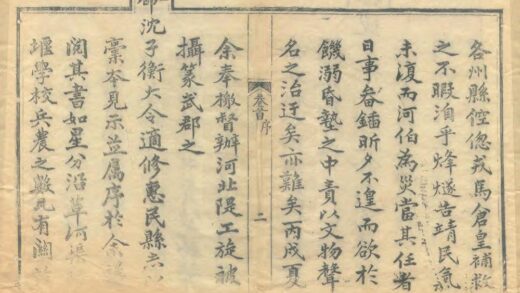 各州縣倥偬戎馬倉皇補救
之不暇洎乎烽燧告靖民氣
未復而河伯為災當其任者
日事畚鍤昕夕不遑而欲於
饑溺昏墊之中責以文物聲
名之治迂矣亦難矣丙戌夏
卷首 序 二
余奉檄督辦河北隄工旋被
攝篆武郡之
沈子衡大令適修惠民縣志
稾夲見示並屬序於余
閱其書如星分沿革河渠
堰學校兵農之數凡有關